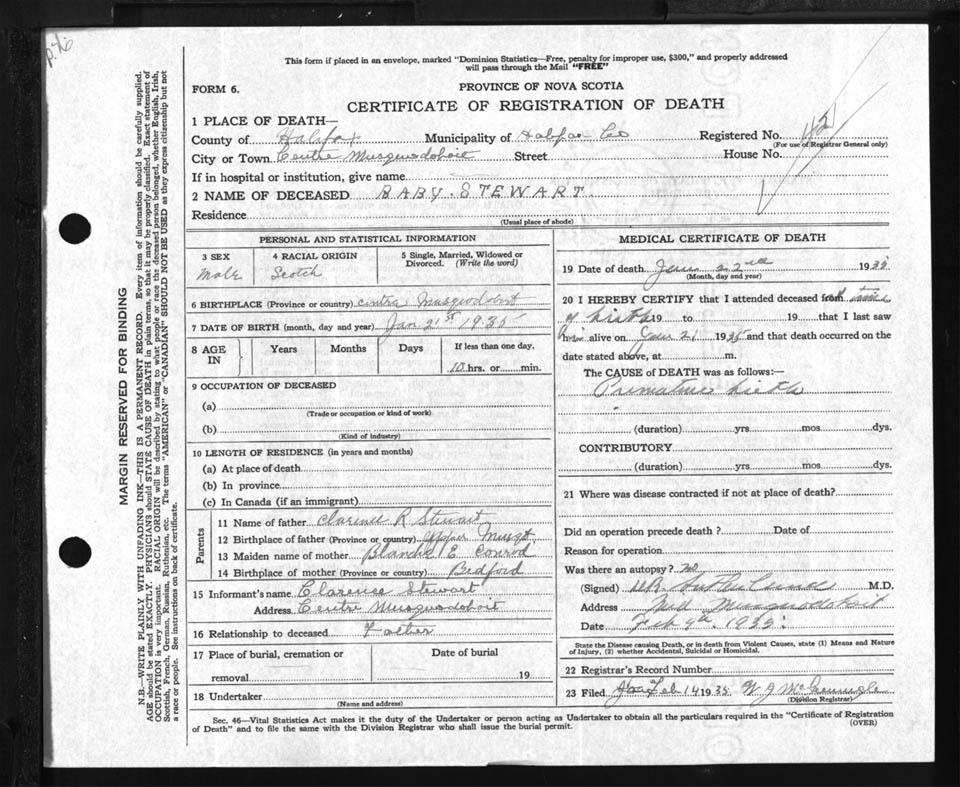 p. 76
This form if placed in an envelope, marked "Dominion Statistics—Free, penalty for improper use, $300," and properly addressed
will pass through the Mail "FREE"
FORM 6.
PROVINCE OF NOVA SCOTIA
CERTIFICATE OF REGISTRATION OF DEATH
1 PLACE OF DEATH—
County of Halifax Municipality of Halifax Co Registered No.
(For use of Registrar General only)
City or Town Centre Musquodoboit Street House No.
If in hospital or institution, give name
2 NAME OF DECEASED BABY STEWART
Residence
(Usual place of abode)
PERSONAL AND STATISTICAL INFORMATION
3 SEX 4 RACIAL ORIGIN 5 Single, Married, Widowed or
Divorced. (Write the word)
Male Scotch
6 BIRTHPLACE (Province or country) Centre Musquodoboit
7 DATE OF BIRTH (month, day and year) Jan 21st 1935
8 AGE IN Years Months Days If less than one day,
10 hrs. or min.
9 OCCUPATION OF DECEASED
(a)
(Trade or occupation or kind of work)
(b)
(Kind of industry)
10 LENGTH OF RESIDENCE (in years and months)
(a) At place of death
(b) In province
(c) In Canada (if an immigrant)
Parents
11 Name of father Clarence R Stewart
12 Birthplace of father (Province or country) Upper Musqt
13 Maiden name of mother Blanche E Conrod
14 Birthplace of mother (Province or country) Bedford
15 Informant's name Clarence Stewart
Address Centre Musquodoboit
16 Relationship to deceased Father
17 Place of burial, cremation or Date of burial
removal 19
18 Undertaker
(Name and address)
MEDICAL CERTIFICATE OF DEATH
19 Date of death Jan 22nd 1935
(Month, day and year)
20 I HEREBY CERTIFY that I attended deceased from time
of birth 19 to 19 that I last saw
him alive on Jan 21 1935 and that death occurred on the
date stated above, at m.
The CAUSE of DEATH was as follows:—
Premature birth
(duration) yrs. mos. dys.
CONTRIBUTORY
(duration) yrs. mos. dys.
21 Where was disease contracted if not at place of death?
Did an operation precede death? Date of
Reason for operation
Was there an autopsy? no
(Signed) M.D.
Address Mid Musquodoboit
Date Feb 9th 1935
State the Disease causing Death, or in death from Violent Causes, state (1) Means and Nature
of Injury, (2) whether Accidental, Suicidal or Homicidal.
22 Registrar's Record Number
23 Filed Feb 14 1935 W J
(Division Registrar)
Sec. 46—Vital Statistics Act makes it the duty of the Undertaker or person acting as Undertaker to obtain all the particulars required in the "Certificate of Registration
of Death" and to file the same with the Division Registrar who shall issue the burial permit. (OVER)
MARGIN RESERVED FOR BINDING
N.B.—WRITE PLAINLY WITH UNFADING INK—THIS IS A PERMANENT RECORD. Every item of information should be carefully supplied.
AGE should be stated EXACTLY. PHYSICIANS should STATE CAUSE OF DEATH in plain terms, so that it may be properly classified. Exact statement of
OCCUPATION is very important. RACIAL ORIGIN will be described by stating to what people or race the deceased person belonged, whether English, Irish,
Scottish, French, German, Russian, Ruthenian, etc. The terms "AMERICAN" or "CANADIAN" SHOULD NOT BE USED as they express citizenship but not
a race or people. See instructions on back of certificate.